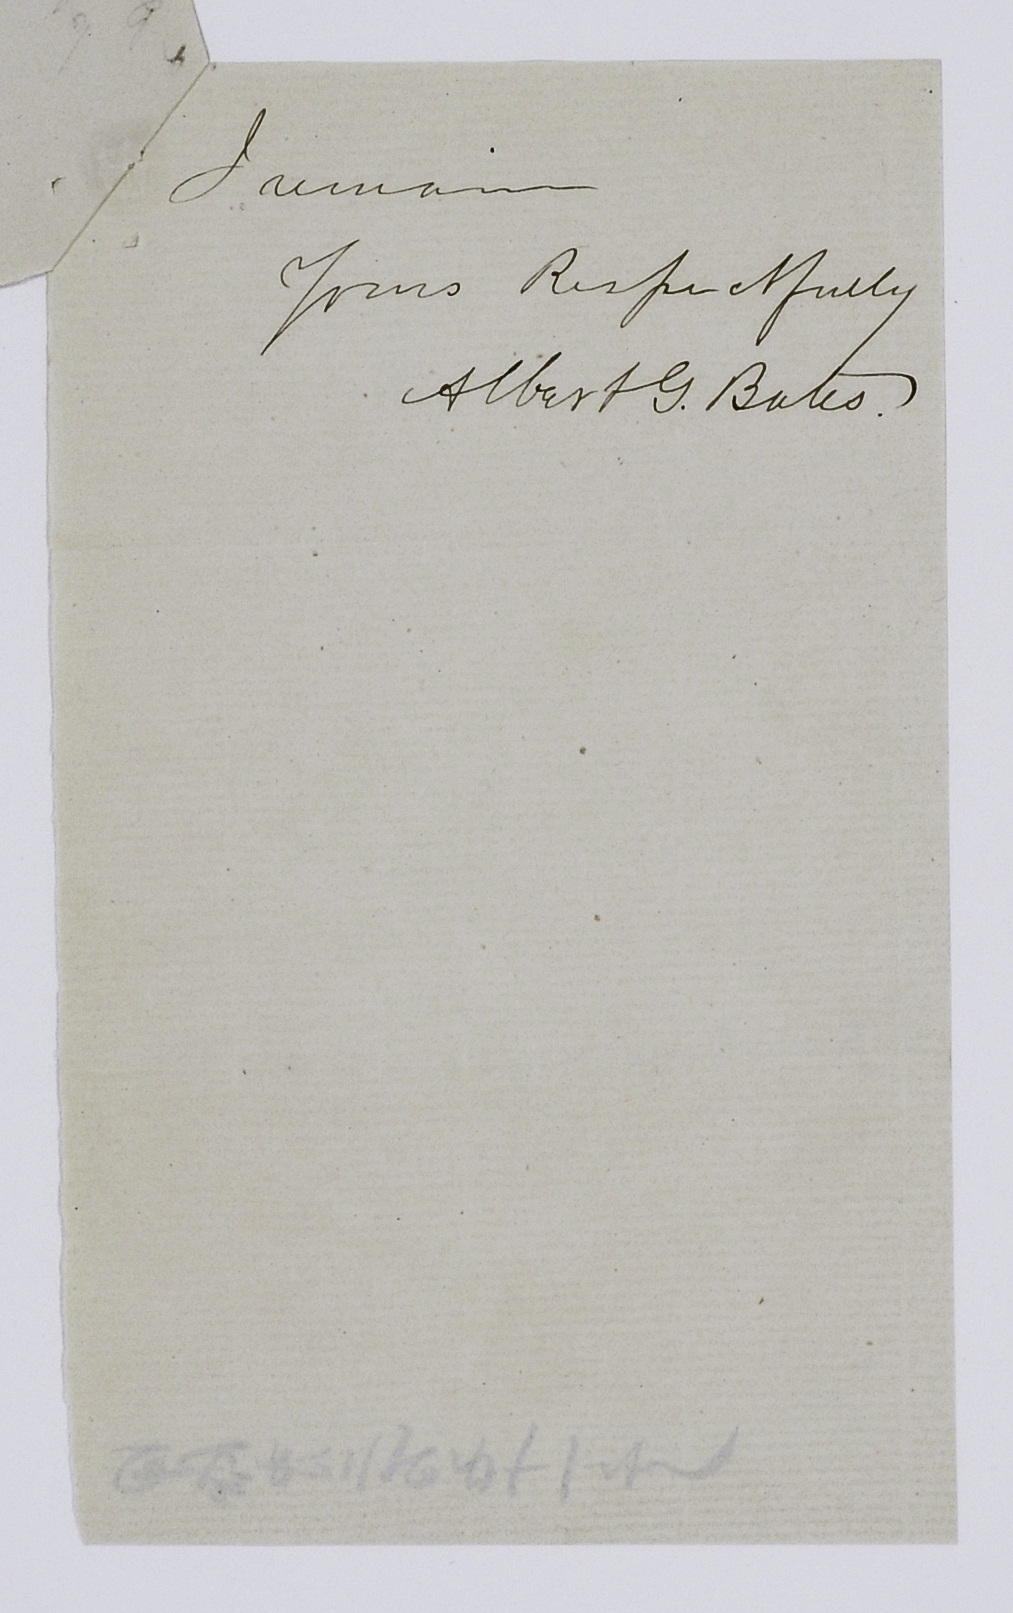 I remain
Yours Respectfully
Albert G. Bates.